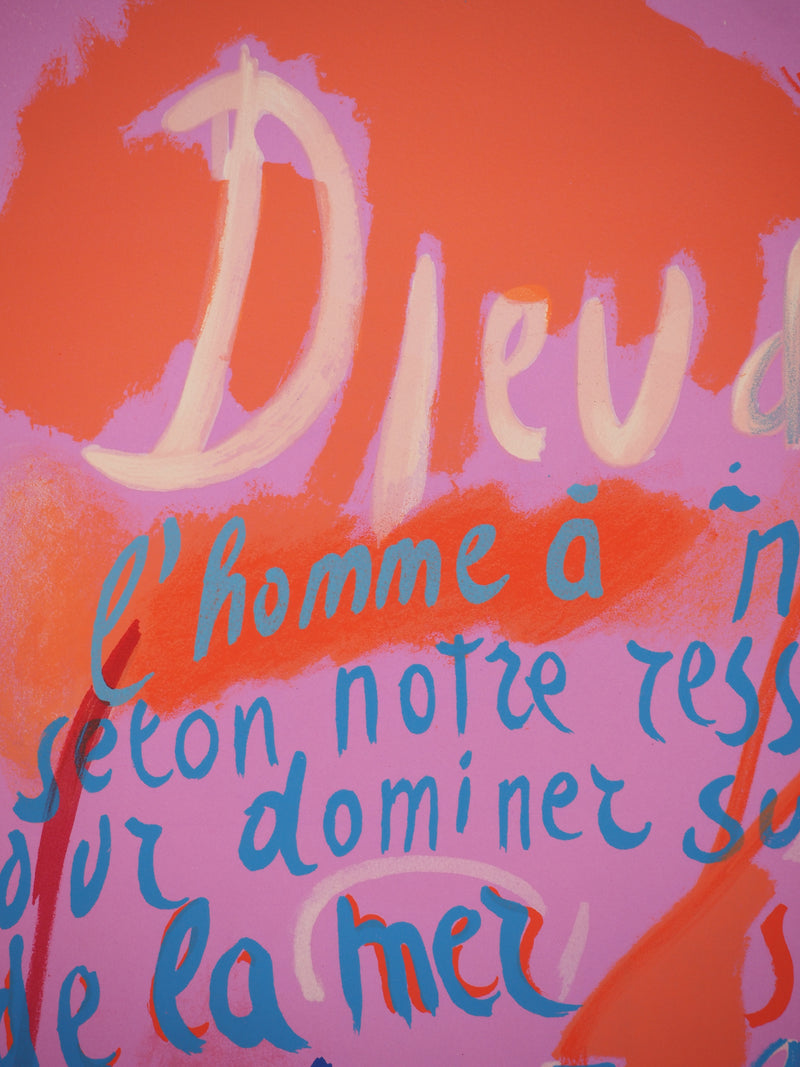 Dieu d
l'homme à n
selon notre ress
our dominer su
de la mer